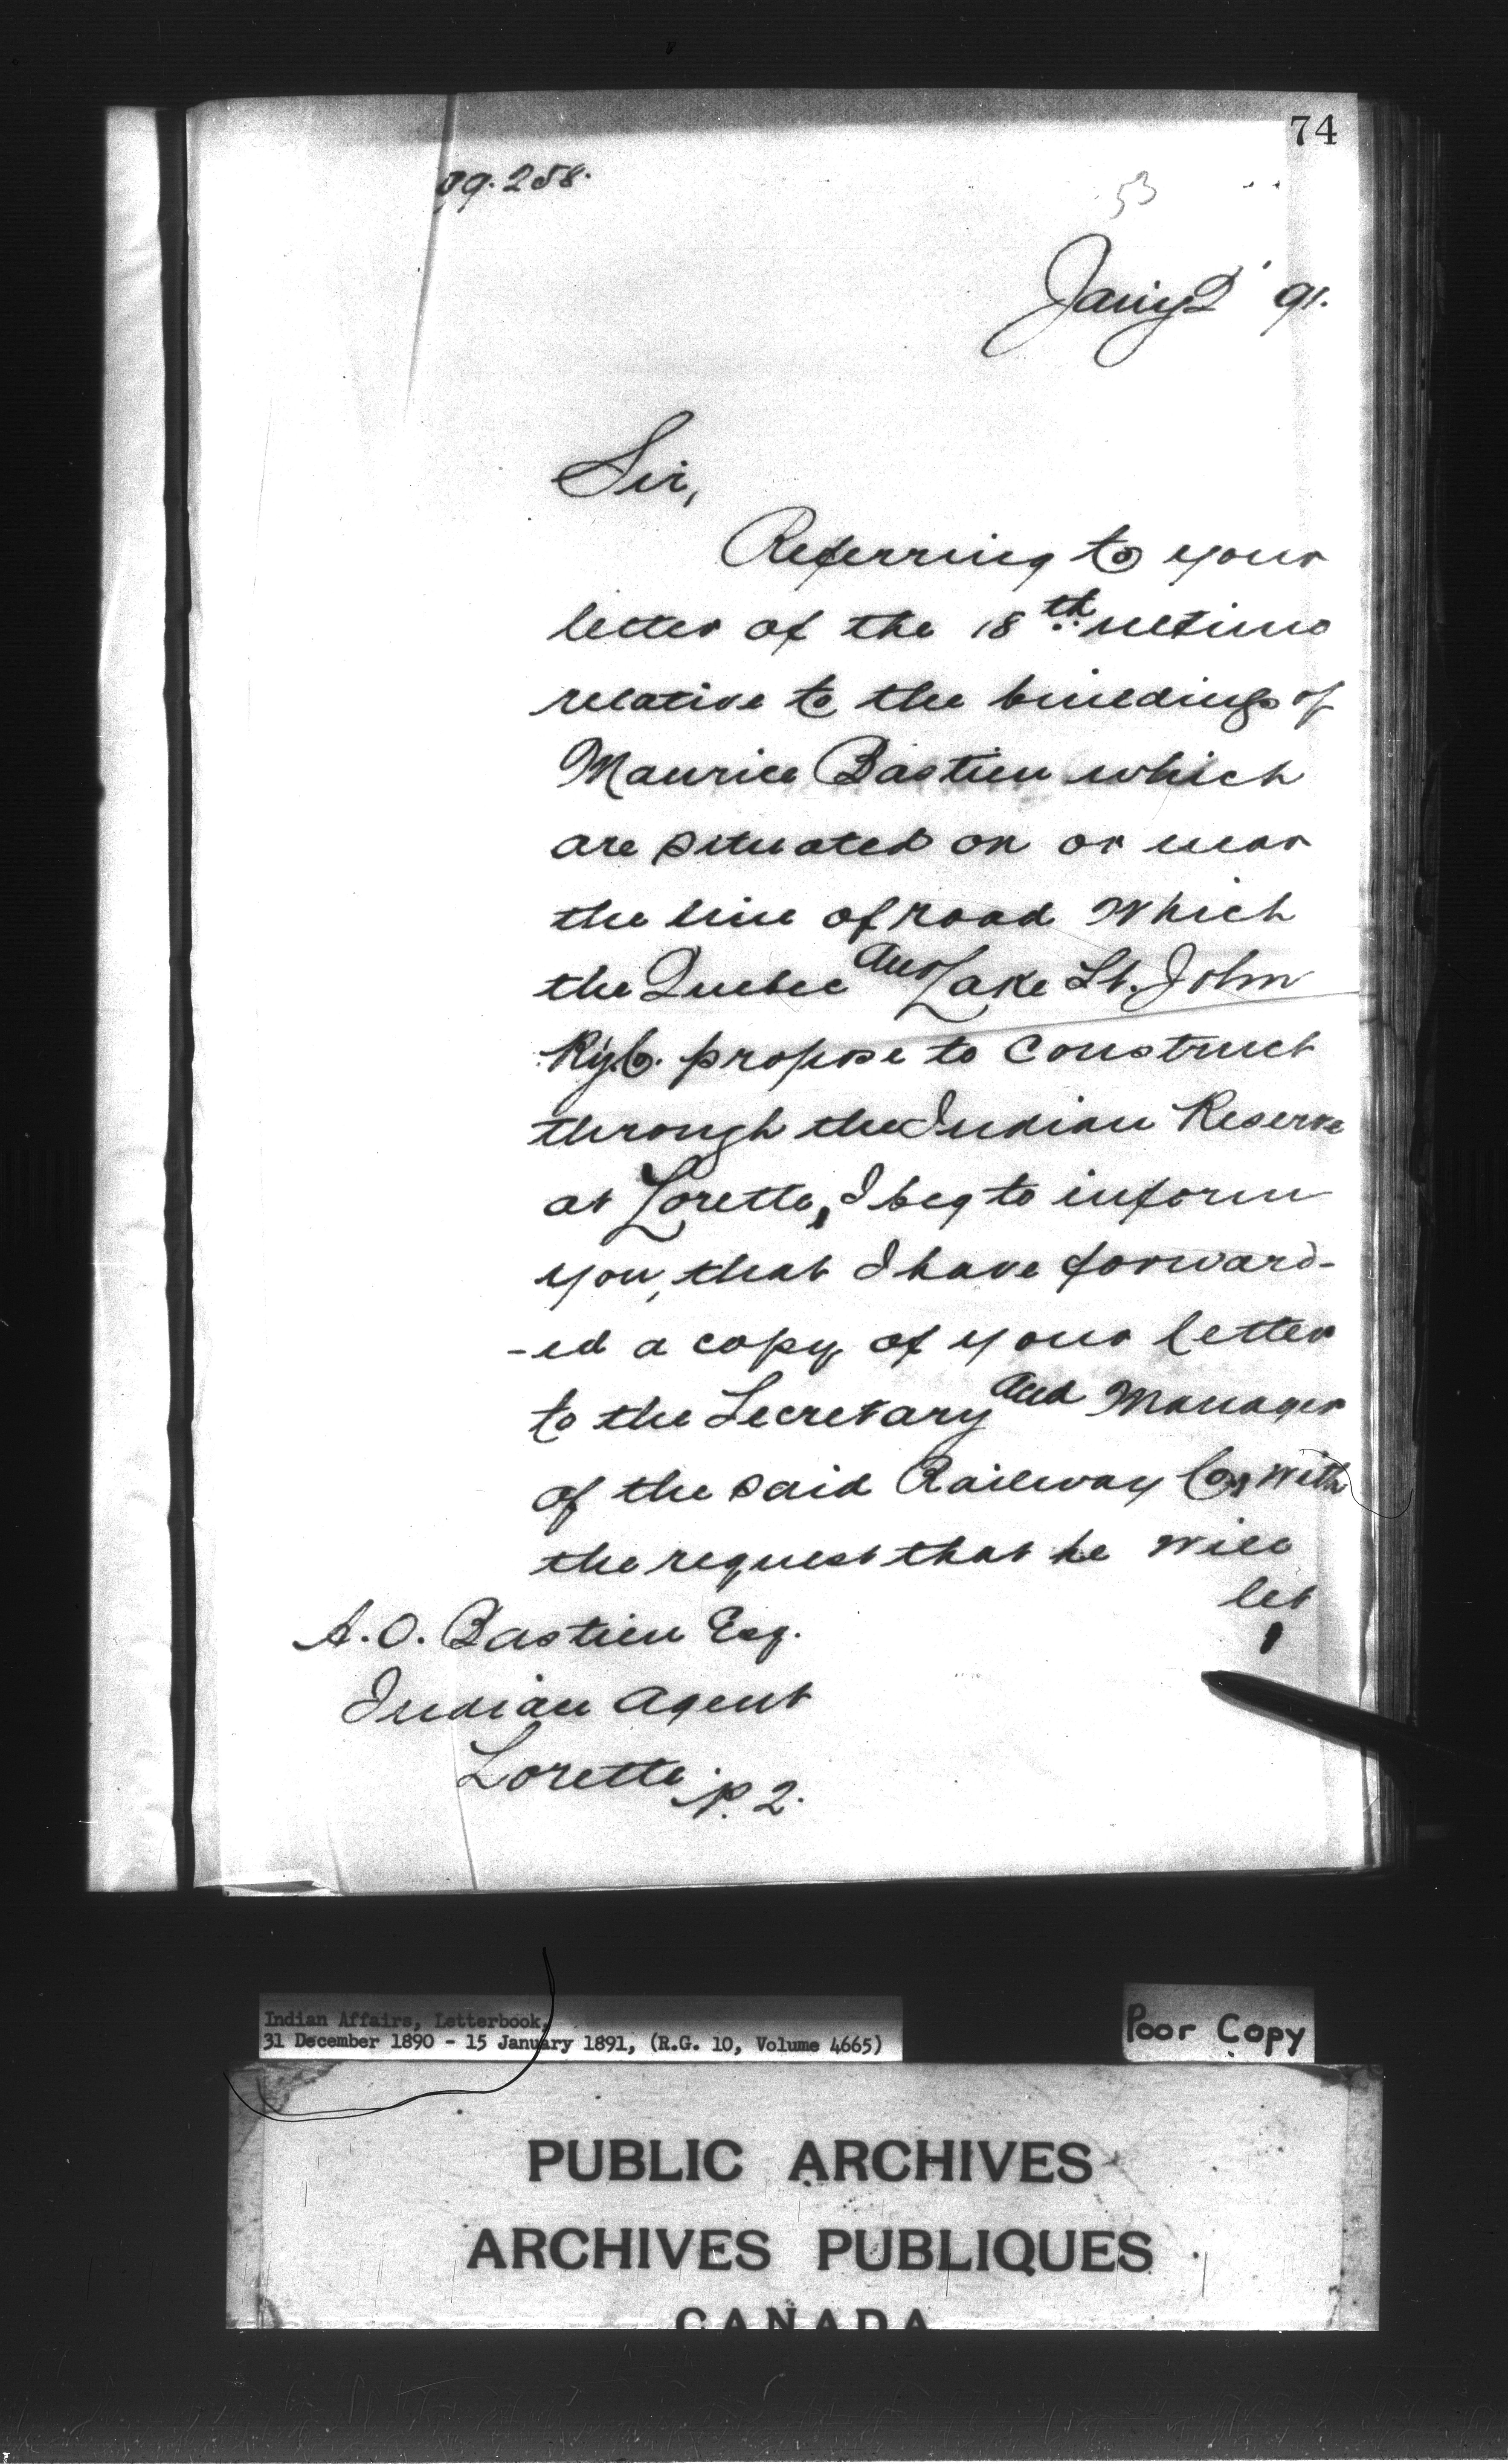 74
99.258.
53
Jany 2' 91.
Sir,
Referring to your
letter of the 18th ultimo
relative to the buildings of
Maurice Bastien which
are situated on or near
the line of road which
the Quebec and Lake St. John
Ry Co. propose to construct
through the Indian Reserve
at Lorette, I beg to inform
you, that I have forward-
-ed a copy of your letter
to the Secretary and Manager
of the said Railway Co, with
the request that he will
let
A. O. Bastien Esq.
Indian Agent
Lorette P.Q.
Indian Affairs, Letterbook,
31 December 1890 - 15 January 1891, (R.G. 10, Volume 4665)
Poor Copy
PUBLIC ARCHIVES
ARCHIVES PUBLIQUES
CANADA